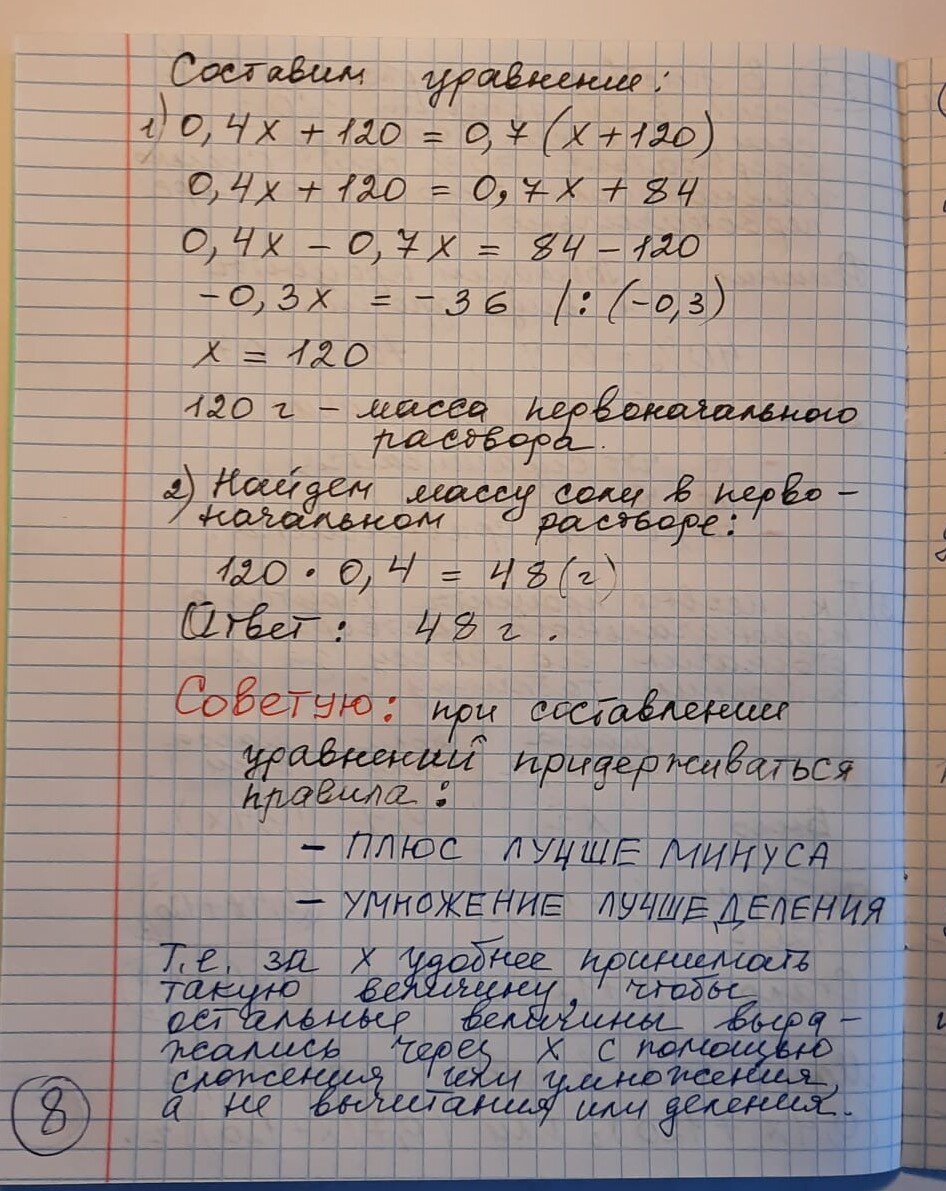 Составим уравнение:
1) 0,4x + 120 = 0,7 (x + 120)
0,4x + 120 = 0,7x + 84
0,4x - 0,7x = 84 - 120
-0,3x = -36 /: (-0,3)
x = 120
120 г - масса первоначального
раствора.
2) Найдем массу соли в перво-
начальном растворе:
120 · 0,4 = 48 (г)
Ответ: 48 г.
Советую: при составлении
уравнений придерживаться
правила:
- ПЛЮС ЛУЧШЕ МИНУСА
- УМНОЖЕНИЕ ЛУЧШЕ ДЕЛЕНИЯ
Т.е. за x удобнее принимать
такую величину, чтобы
остальные величины выра-
жались через x с помощью
сложения или умножения,
а не вычитания или деления.
8